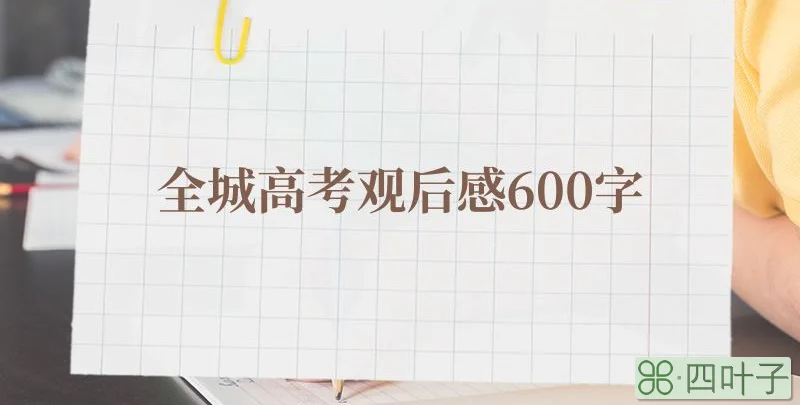 全城高考观后感600字
四叶子